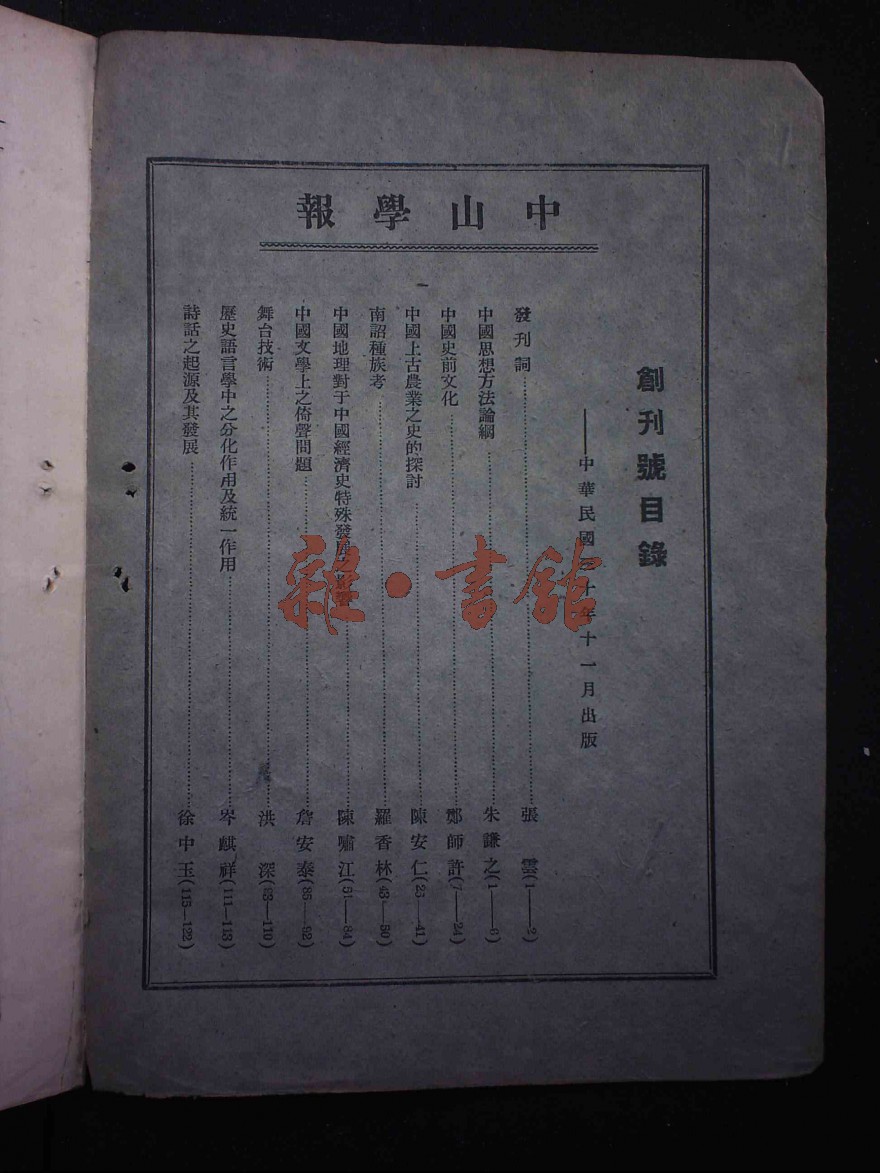 中山學報
創刊號目錄
——中華民國三十年十一月出版
發刊詞……張雲(1——2)
中國思想方法論綱……朱謙之(1——6)
中國史前文化……鄭師許(7——24)
中國上古農業之史的探討……陳安仁(25——41)
南詔種族考……羅香林(43——50)
中國地理對于中國經濟史特殊發展之影響……陳嘯江(51——84)
中國文學上之倚聲問題……詹安泰(85——92)
舞台技術……洪深(93——110)
歷史語言學中之分化作用及統一作用……岑麒祥(111—113)
詩話之起源及其發展……徐中玉(115—122)
雜·書館